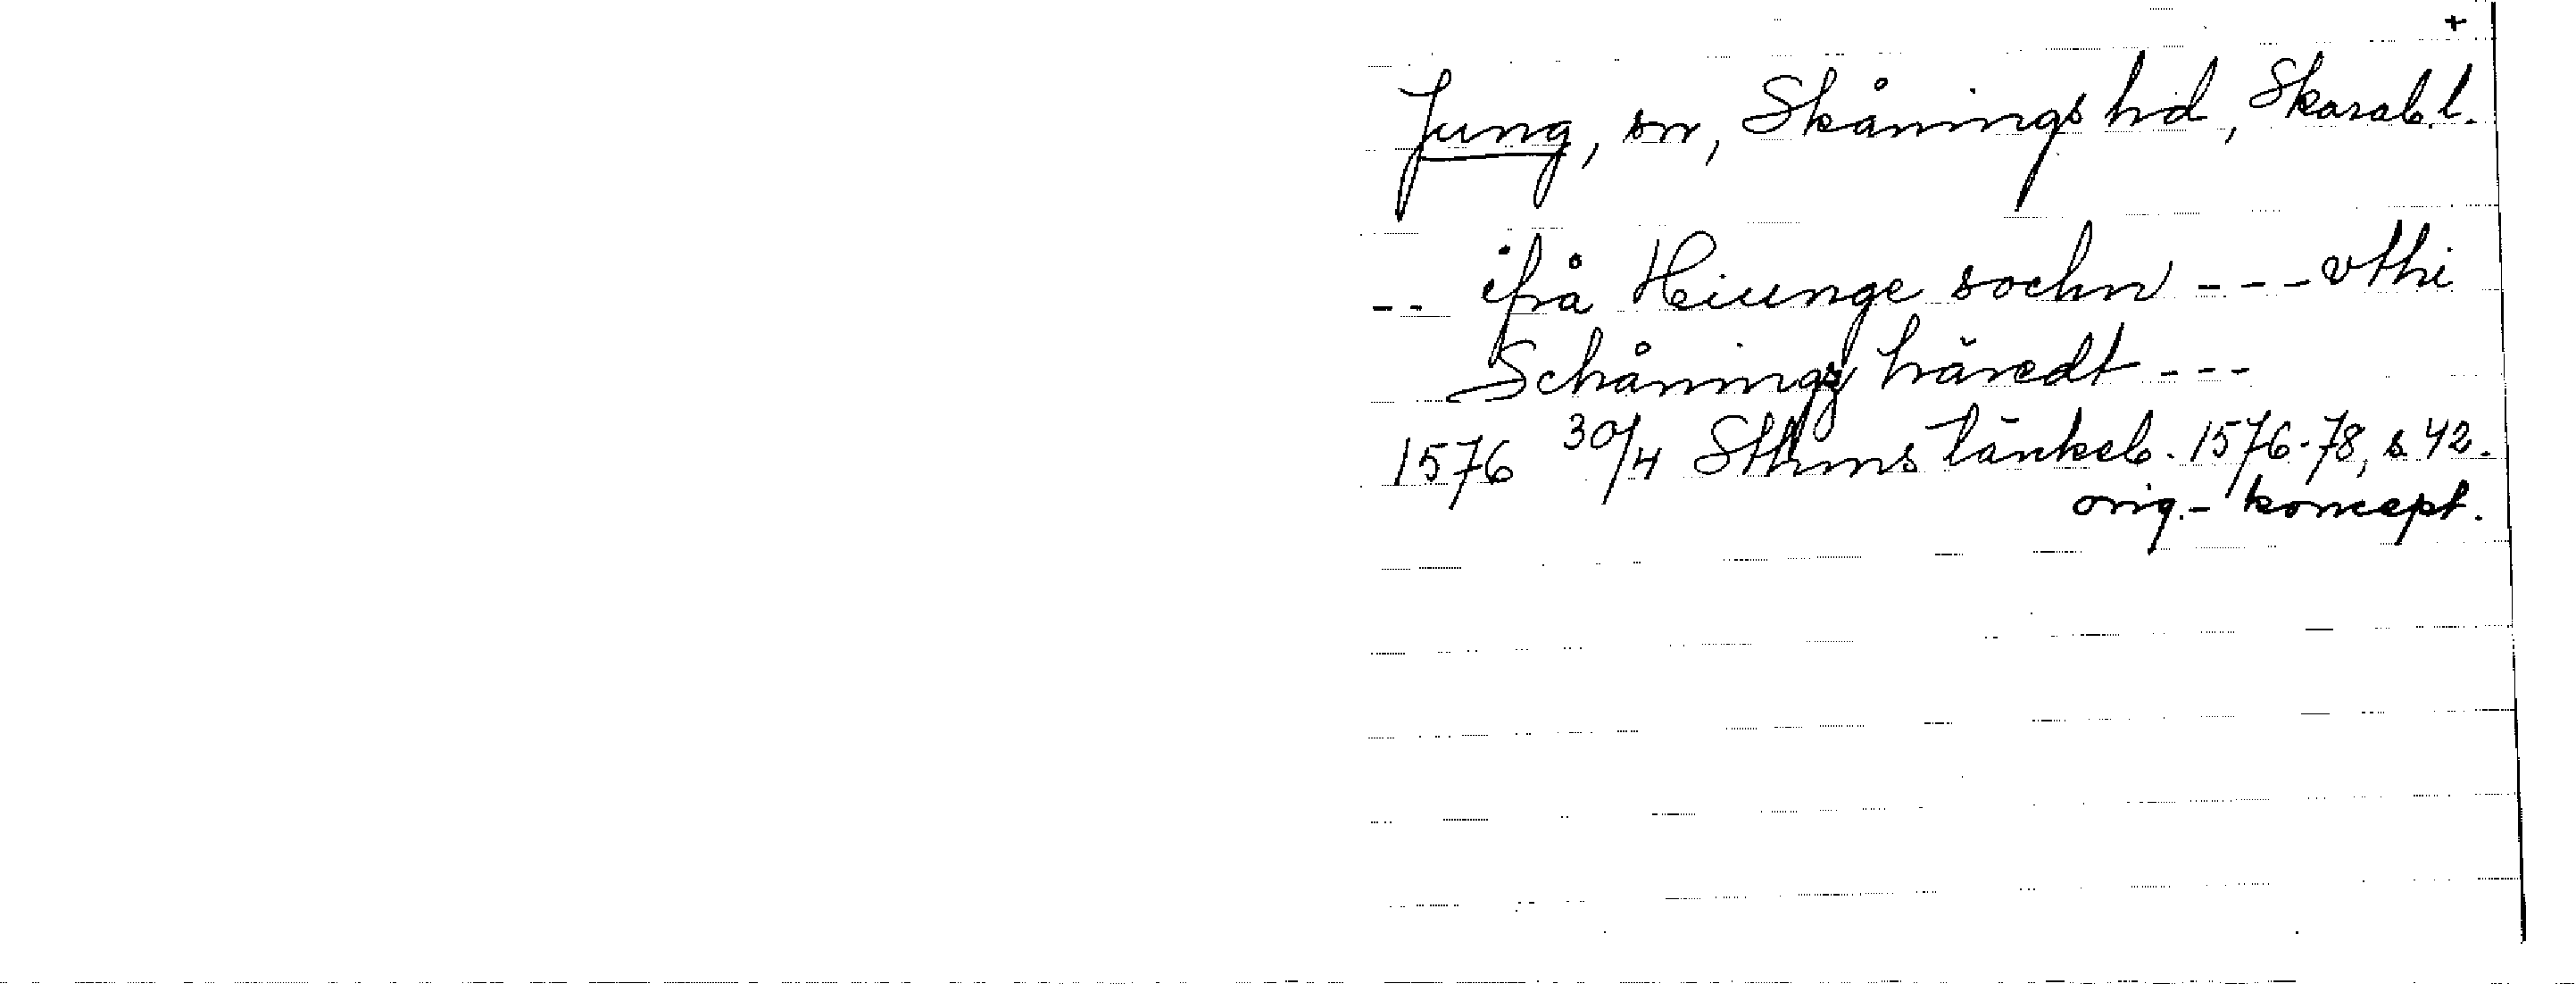 +
Jung, sn, Skånings hd, Skarab.l.
-- ifrå Hiunge sochn --- vthi
Schånings häredt ---
1576 30/4 Sthms tänkeb. 1576-78, s 42.
orig.- koncept.